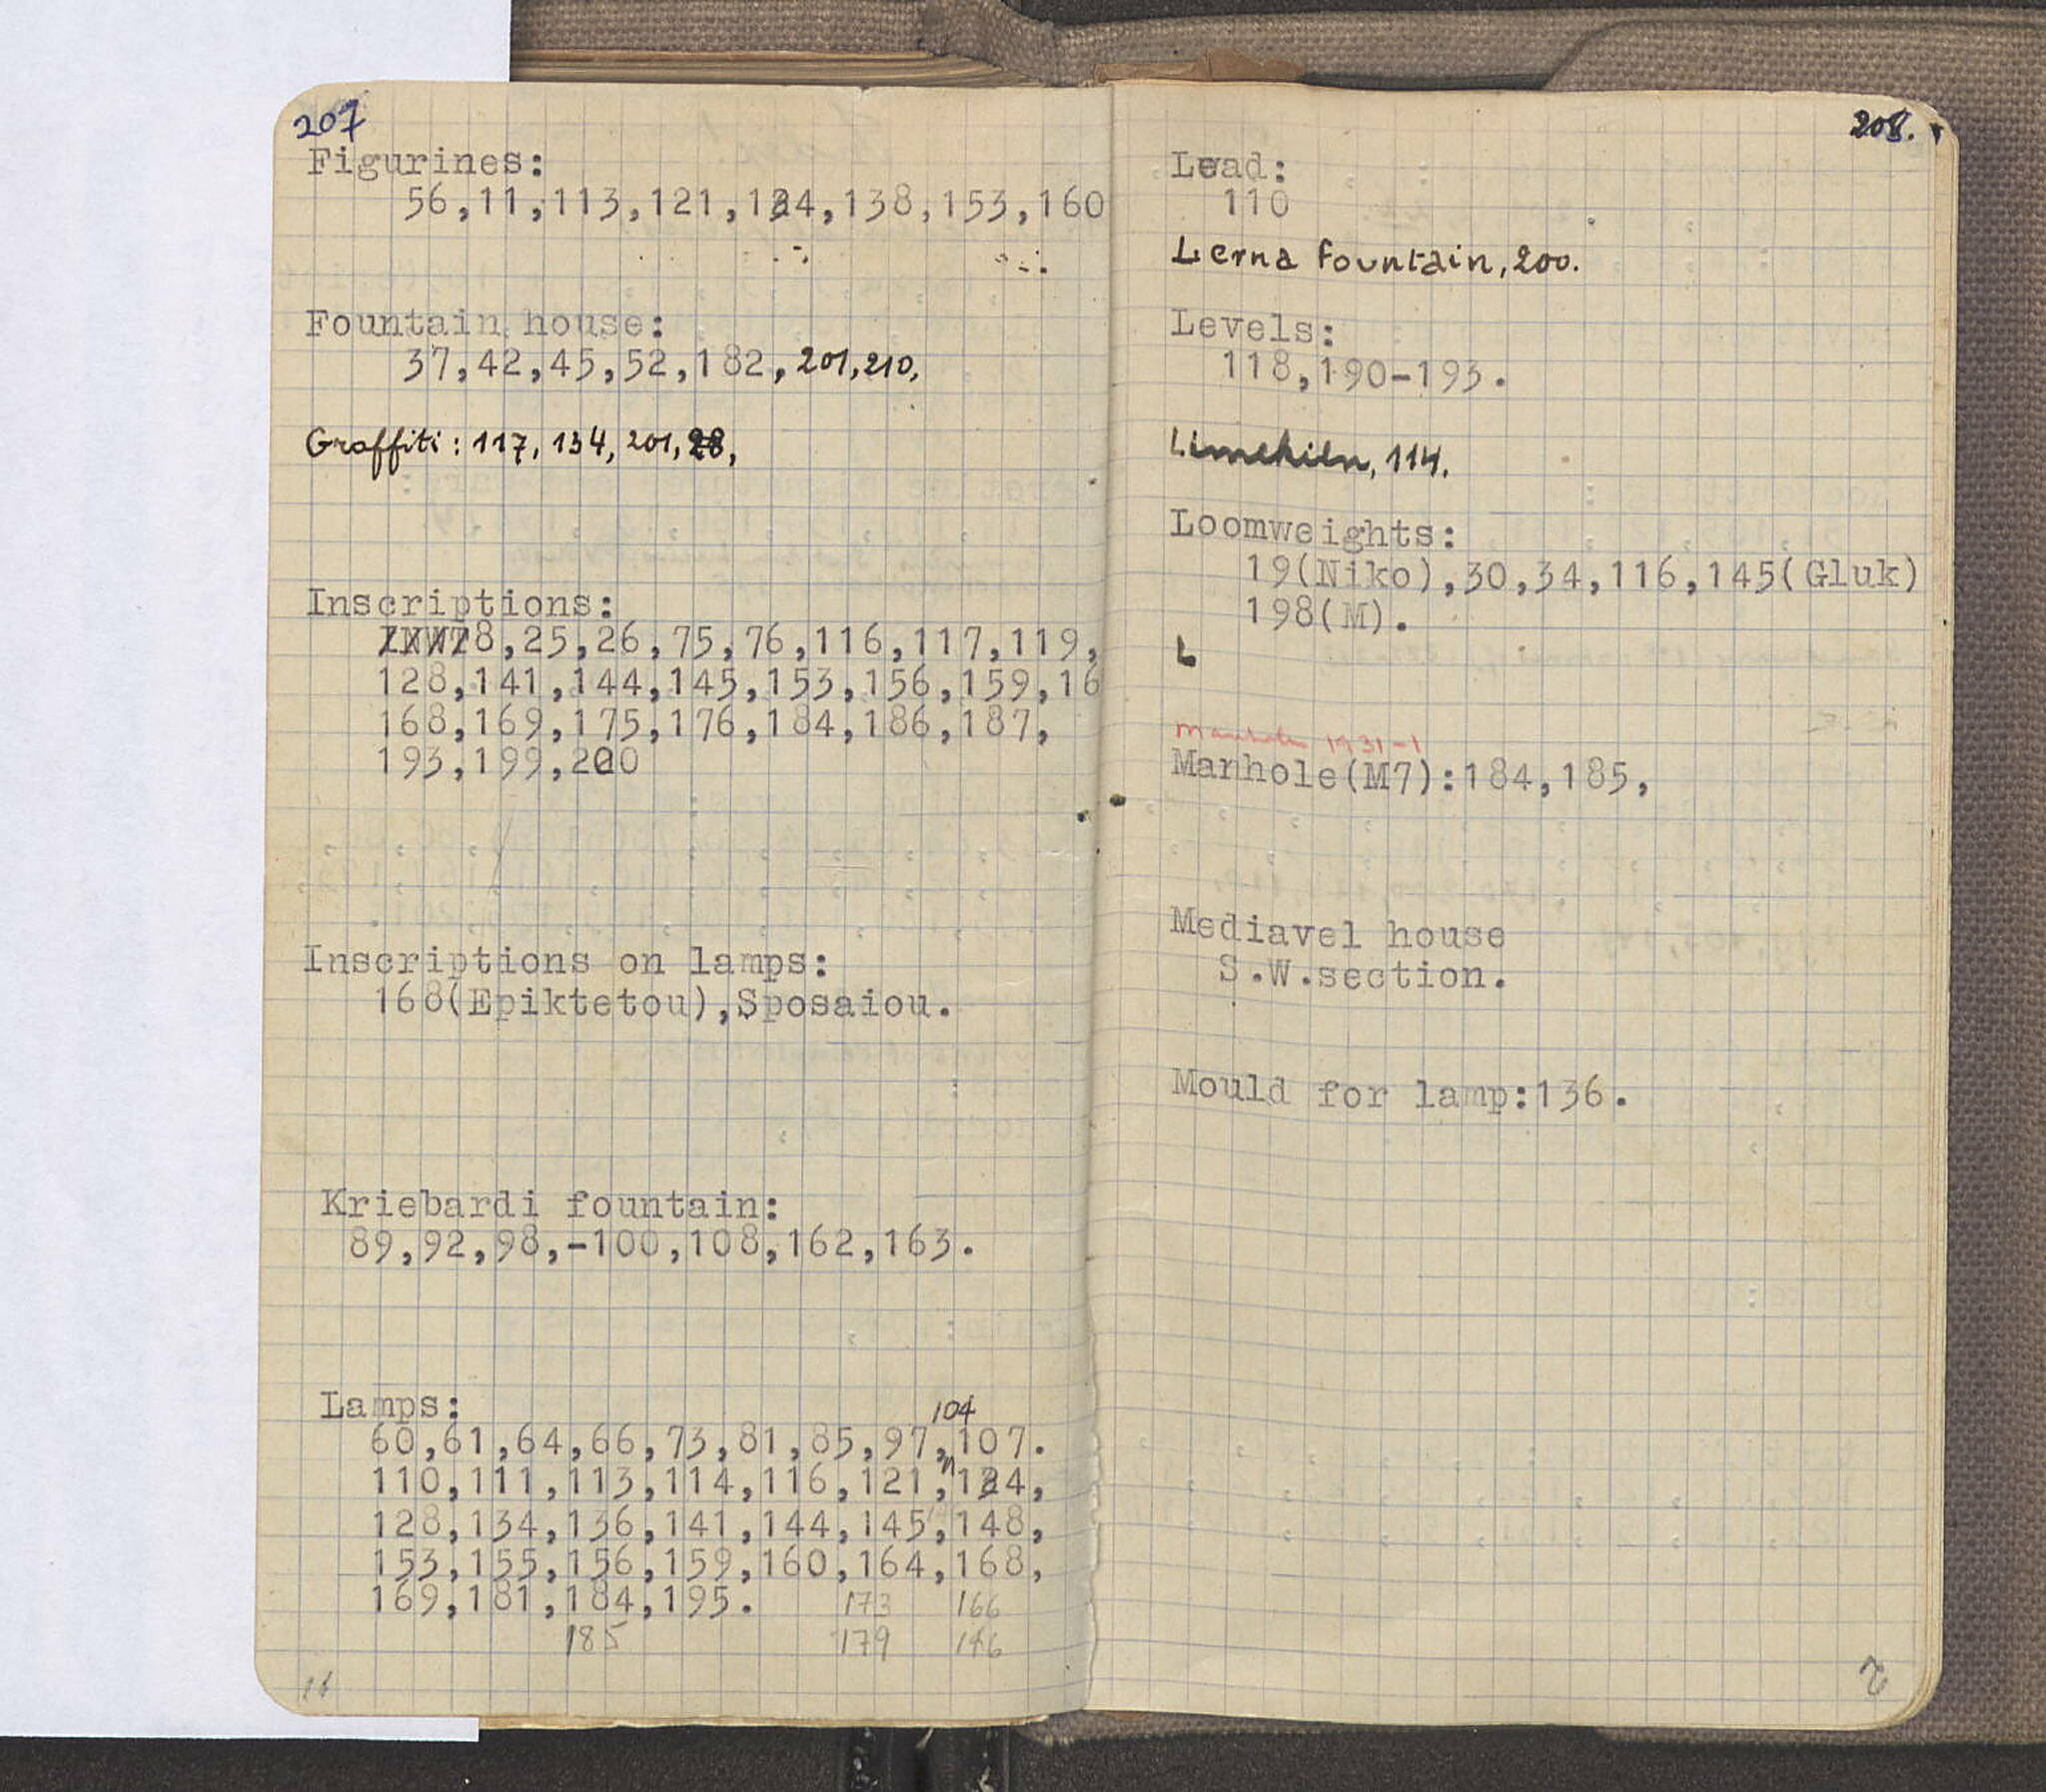 207
Figurines:
56,11,113,121,124,138,153,160
Fountain house:
37,42,45,52,182,201,210,
Graffiti: 117, 134, 201, 28,
Inscriptions:
8,25,26,75,76,116,117,119,
128,141,144,145,153,156,159,16
168,169,175,176,184,186,187,
193,199,200
Inscriptions on lamps:
168(Epiktetou),Sposaiou.
Kriebardi fountain:
89,92,98,-100,108,162,163.
Lamps:
104
60,61,64,66,73,81,85,97,107.
110,111,113,114,116,121,124,
128,134,136,141,144,145,148,
153,155,156,159,160,164,168,
169,181,184,195. 173 166
185 179 146
208.
Lead:
110
Lerna fountain, 200.
Levels:
118,190-193.
Limekiln, 114.
Loomweights:
19(Niko),30,34,116,145(Gluk)
198(M).
L
Manhole 1931-1
Manhole(M7):184,185,
Mediavel house
S.W.section.
Mould for lamp:136.